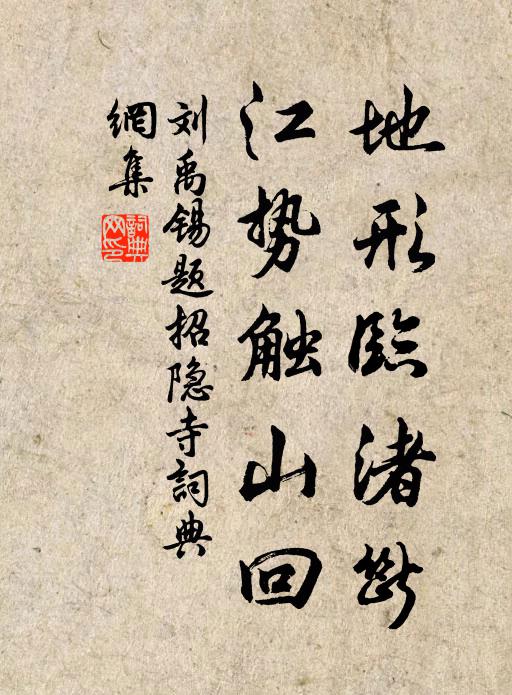 地形臨渚断
江势触山回
刘禹锡题招隐寺詞典
網集
詞典
网印